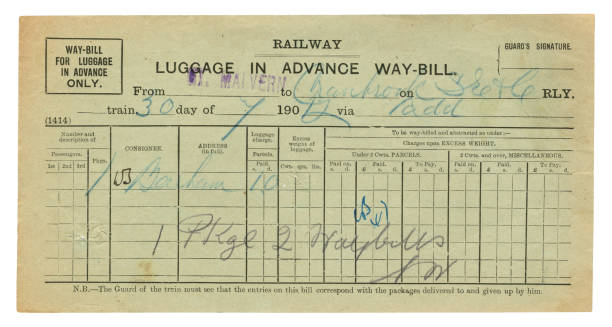 WAY-BILL
FOR LUGGAGE
IN ADVANCE
ONLY.
RAILWAY
GUARD'S SIGNATURE.
LUGGAGE IN ADVANCE WAY-BILL.
From GT. MALVERN to Cranbrook on RLY.
train 30 day of 7 190 via Padd
(1414)
Number and description of
Passengers.
1st 2nd 3rd
Pkgs.
CONSIGNEE.
ADDRESS
(in full).
Luggage charge.
Parcels.
Paid.
s. d.
Excess weight of luggage.
Cwt. qrs. lbs.
To be way-billed and abstracted as under:—
Charges upon EXCESS WEIGHT.
Under 2 Cwts. PARCELS.
2 Cwts. and over, MISCELLANEOUS.
Paid on.
s. d.
Paid.
£ s. d.
To Pay.
£ s. d.
Paid on.
s. d.
Paid.
£ s. d.
To Pay.
£ s. d.
1
1 Pkge 2 Waybills
N.B.—The Guard of the train must see that the entries on this bill correspond with the packages delivered to and given up by him.